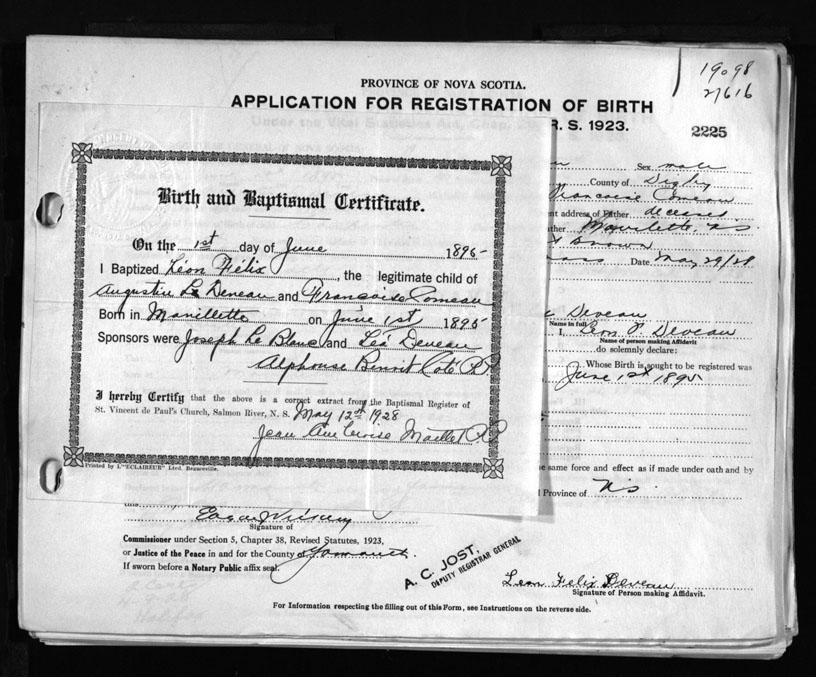 19098
21616
PROVINCE OF NOVA SCOTIA.
APPLICATION FOR REGISTRATION OF BIRTH
R. S. 1923.
2225
Sex male
County of Digby
Francoise Comeau
address of Father deceased
Mavilette, N.S.
Brown
Mass Date May 29/28
Birth and Baptismal Certificate.
On the 1st day of June 1895
I Baptized Léon Félix, the legitimate child of
Augustin Le Deveau and Francoise Comeau
Born in Mavillette on June 1st 1895
Sponsors were Joseph Le Blanc and Léa Deveau
Alphonse Benoit Coté
I hereby Certify that the above is a correct extract from the Baptismal Register of
St. Vincent de Paul's Church, Salmon River, N. S. May 12th 1928
Jean Ambroise Maillet
Printed by L'"ECLAIREUR" Ltd. Beauceville.
Deveau
Name in full
I, Leon P. Deveau
Name of person making Affidavit
do solemnly declare:
Whose Birth is sought to be registered was
June 1st 1895
same force and effect as if made under oath and by
Province of N.S.
Signature of
Commissioner under Section 5, Chapter 38, Revised Statutes, 1923,
or Justice of the Peace in and for the County of Yarmouth
If sworn before a Notary Public affix seal.
A. C. JOST,
DEPUTY REGISTRAR GENERAL
Leon Felix Deveau
Signature of Person making Affidavit.
Halifax
For Information respecting the filling out of this Form, see Instructions on the reverse side.